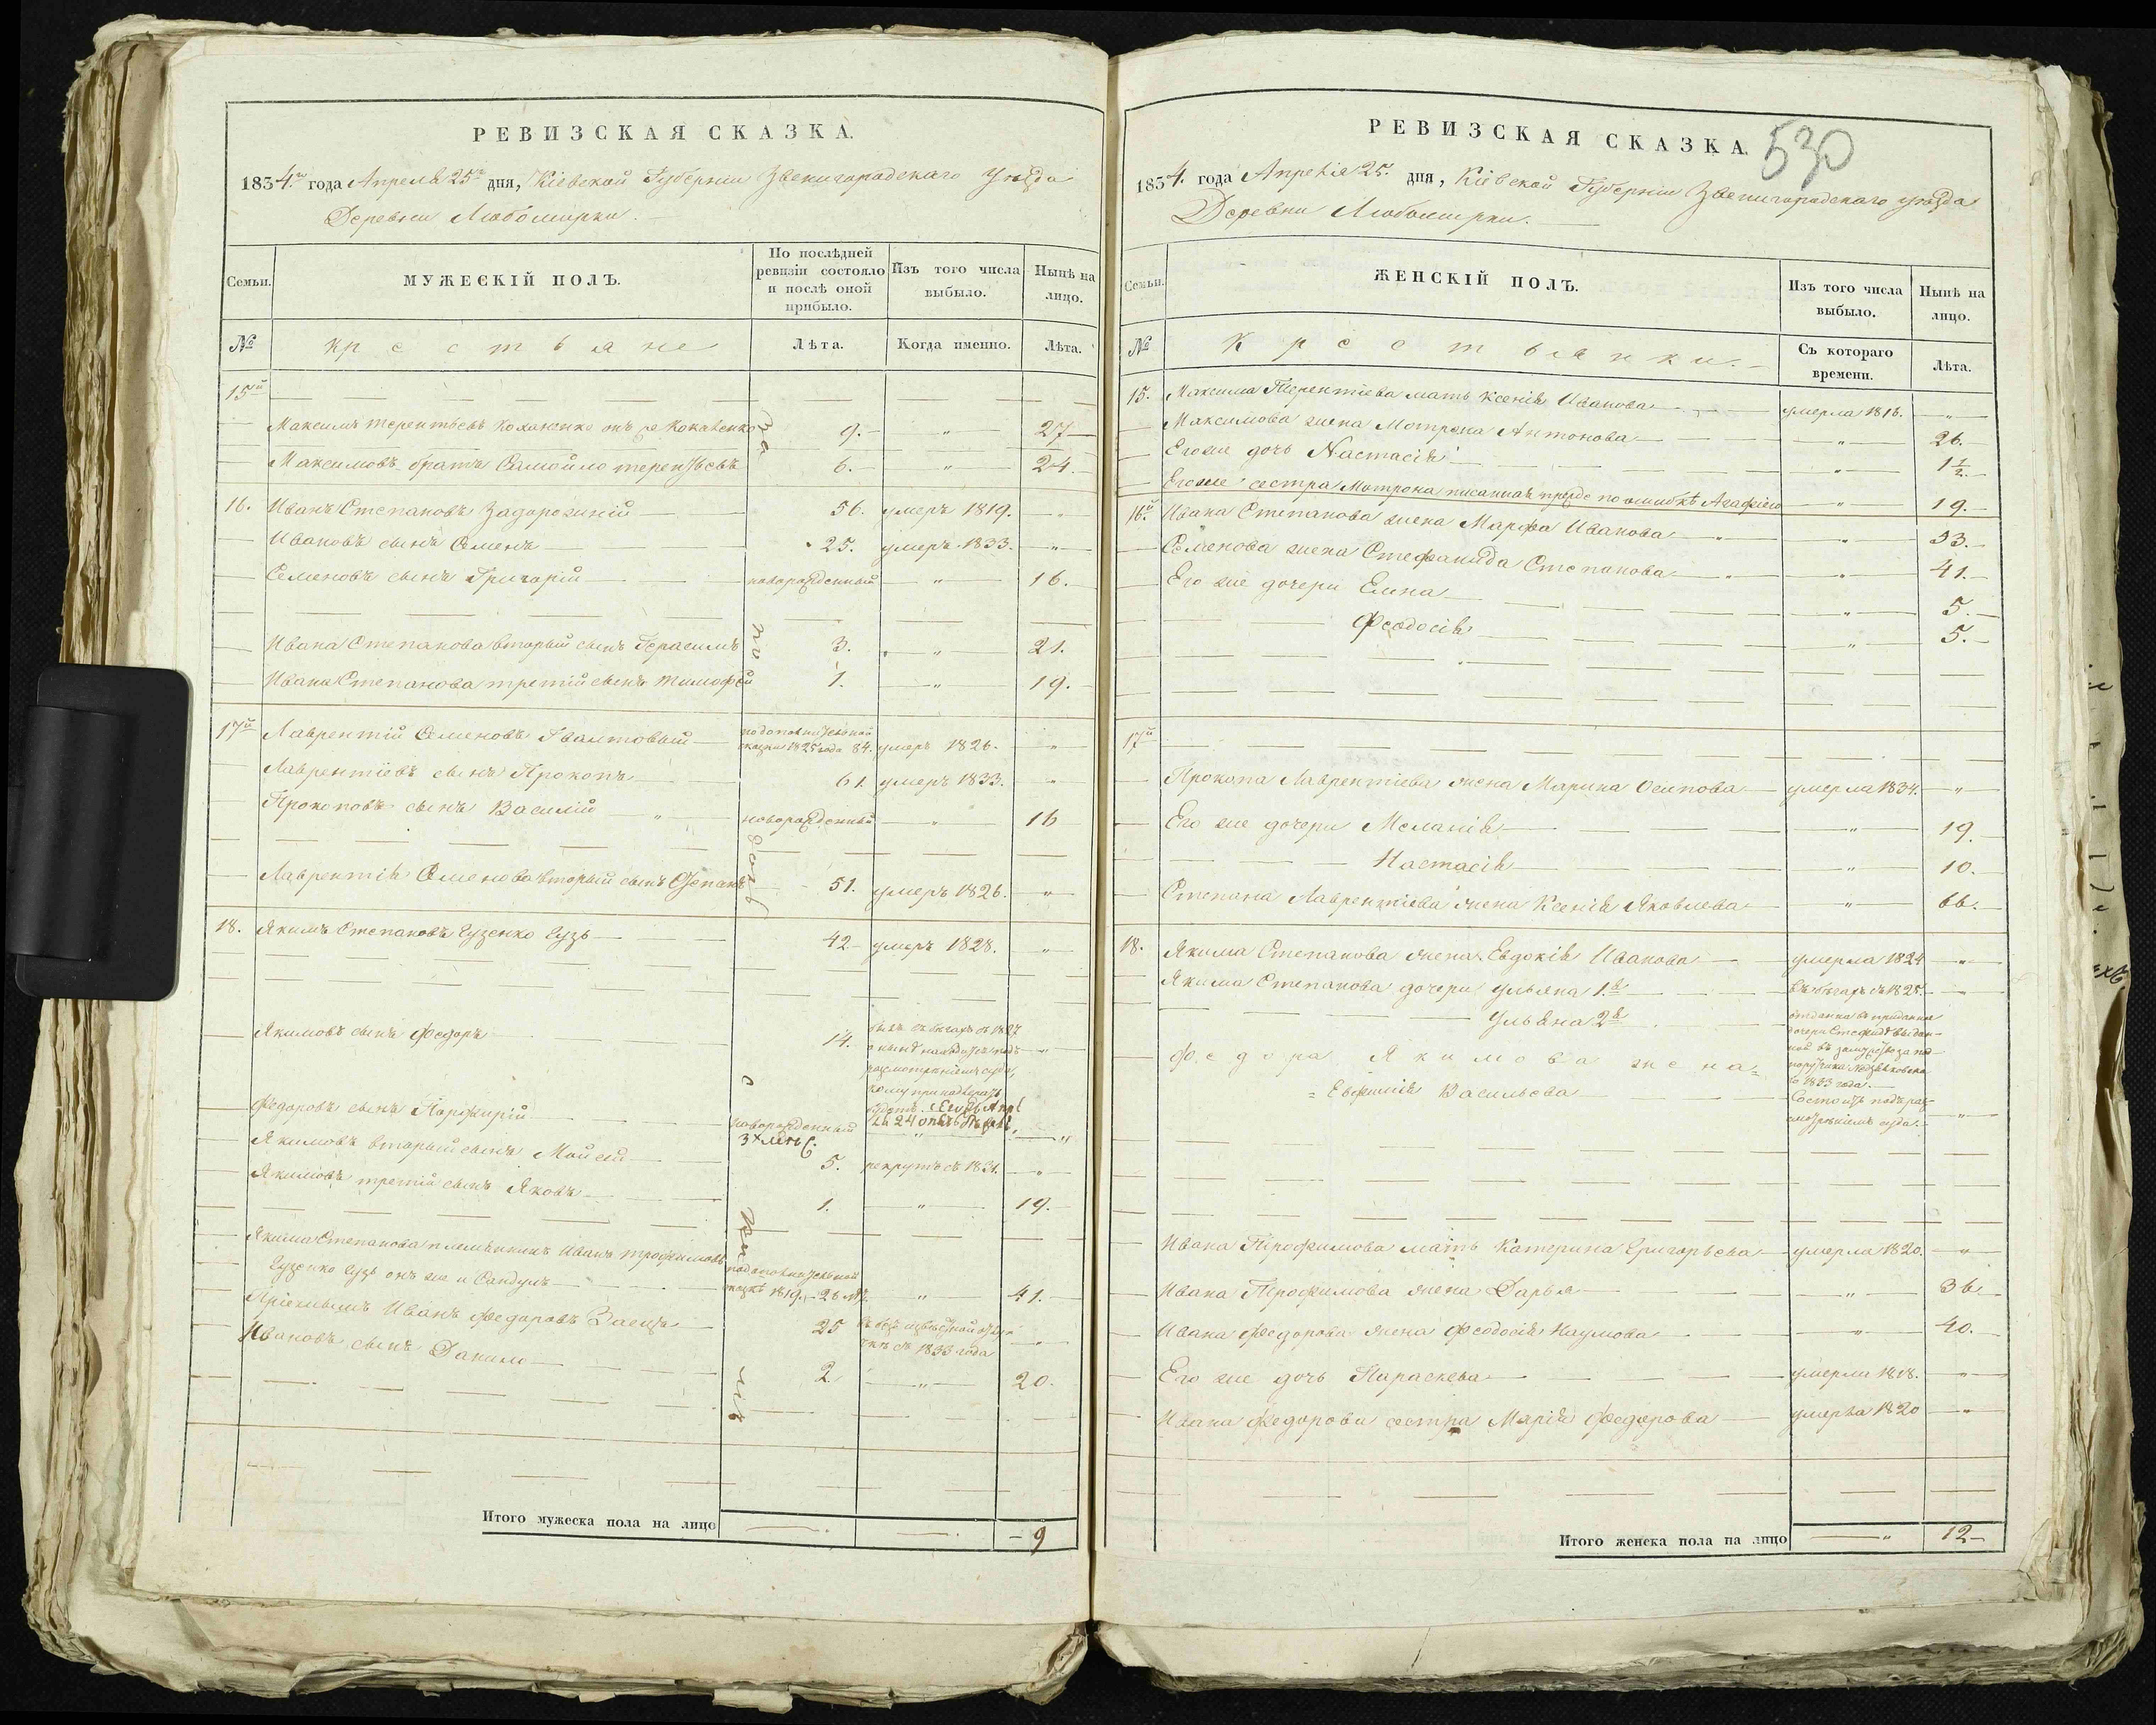 РЕВИЗСКАЯ СКАЗКА.
1834.го года Апреля 25го дня, Кіевской Губерніи Звенигородскаго Уѣзда
Деревни Любомирки.
Семьи.
МУЖЕСКІЙ ПОЛЪ.
По послѣдней
ревизіи состояло
и послѣ оной
прибыло.
Изъ того числа
выбыло.
Нынѣ на
лицо.
№
крестьяне
Лѣта.
Когда именно.
Лѣта.
15й
Максимъ Терентьевъ онъ же 9. " 27
Максимовъ братъ Самойло Терентьевъ 6. " 24.
16. Иванъ Степановъ Задорожній 56. умеръ 1819. "
Ивановъ сынъ Семенъ 25. умеръ 1833. "
Семеновъ сынъ Григорій новорожденный " 16.
Ивана Степанова вторый сынъ Герасимъ 3. " 21.
Ивана Степанова третій сынъ Тимофей 1. " 19.
17й Лаврентій Семеновъ Гвалтовый по дополнительной
сказке 1825 года 84. умеръ 1826. "
Лаврентіевъ сынъ Прокопъ 61. умеръ 1833. "
Прокоповъ сынъ Василій " новорожденный " 16
Лаврентія Семенова вторый сынъ Степанъ 51. умеръ 1826. "
18. Якимъ Степановъ Гузенко Гузь 42 умеръ 1828. "
Якимовъ сынъ Федоръ 14. былъ въ бегахъ съ 1827
а нынѣ находится подъ "
разсмотрѣніемъ суда,
кому принадлежать
будетъ.
Федоровъ сынъ Порфирій новорожденный
3х летъ "
Якимовъ вторый сынъ Мойсей 5. рекрутъ съ 1831. "
Якимовъ третій сынъ Яковъ 1. " 19.
Якима Степанова племянникъ Иванъ Трофимовъ
Гузенко Гузь онъ же и Сандулъ по дополнительной
сказкѣ 1819. 26 " 41.
Иванъ Федоровъ Заецъ 25 въ безъизвѣстной
съ 1833 года "
Ивановъ сынъ Данило 2. " 20.
Итого мужеска пола на лицо 9
РЕВИЗСКАЯ СКАЗКА.
530
1834. года Апреля 25. дня, Кіевской Губерніи Звенигородскаго уѣзда
Деревни Любомирки.
Семьи.
ЖЕНСКІЙ ПОЛЪ.
Изъ того числа
выбыло.
Нынѣ на
лицо.
№
Крестьянки.
Съ котораго
времени.
Лѣта.
15. Максима Терентіева мать Ксенія Иванова умерла 1816. "
Максимова жена Мотрона Антонова " 26.
Его же дочь Настасія " 1 1/2.
Его же сестра Мотрона писанная прежде по ошибкѣ Агафіею " 19.
16й. Ивана Степанова жена Марфа Иванова " 53.
Семенова жена Стефанида Степанова " 41.
Его же дочери Елена " 5.
Феодосія " 5.
17й
Прокопа Лаврентіева жена Марина Осипова умерла 1834. "
Его же дочери Меланія " 19.
Настасія " 10.
Степана Лаврентіева жена Ксенія Яковлева " 66.
18. Якима Степанова жена Евдокія Иванова умерла 1824 "
Якима Степанова дочери Ульяна 1.я въ бѣгахъ съ 1825. "
Ульяна 2я отдана въ приданое
дочери
въ замужество за по-
ручика
1833 года.
Федора Якимова жена=
=Евфимія Васильева Состоитъ подъ раз-
смотрѣніемъ суда. "
Ивана Трофимова мать Катерина Григорьева умерла 1820. "
Ивана Трофимова жена Дарья " 36
Ивана Федорова жена Феодосія Наумова " 40.
Его же дочь Параскева умерла 1818. "
Ивана Федорова сестра Марія Федорова умерла 1820 "
Итого женска пола на лицо " 12